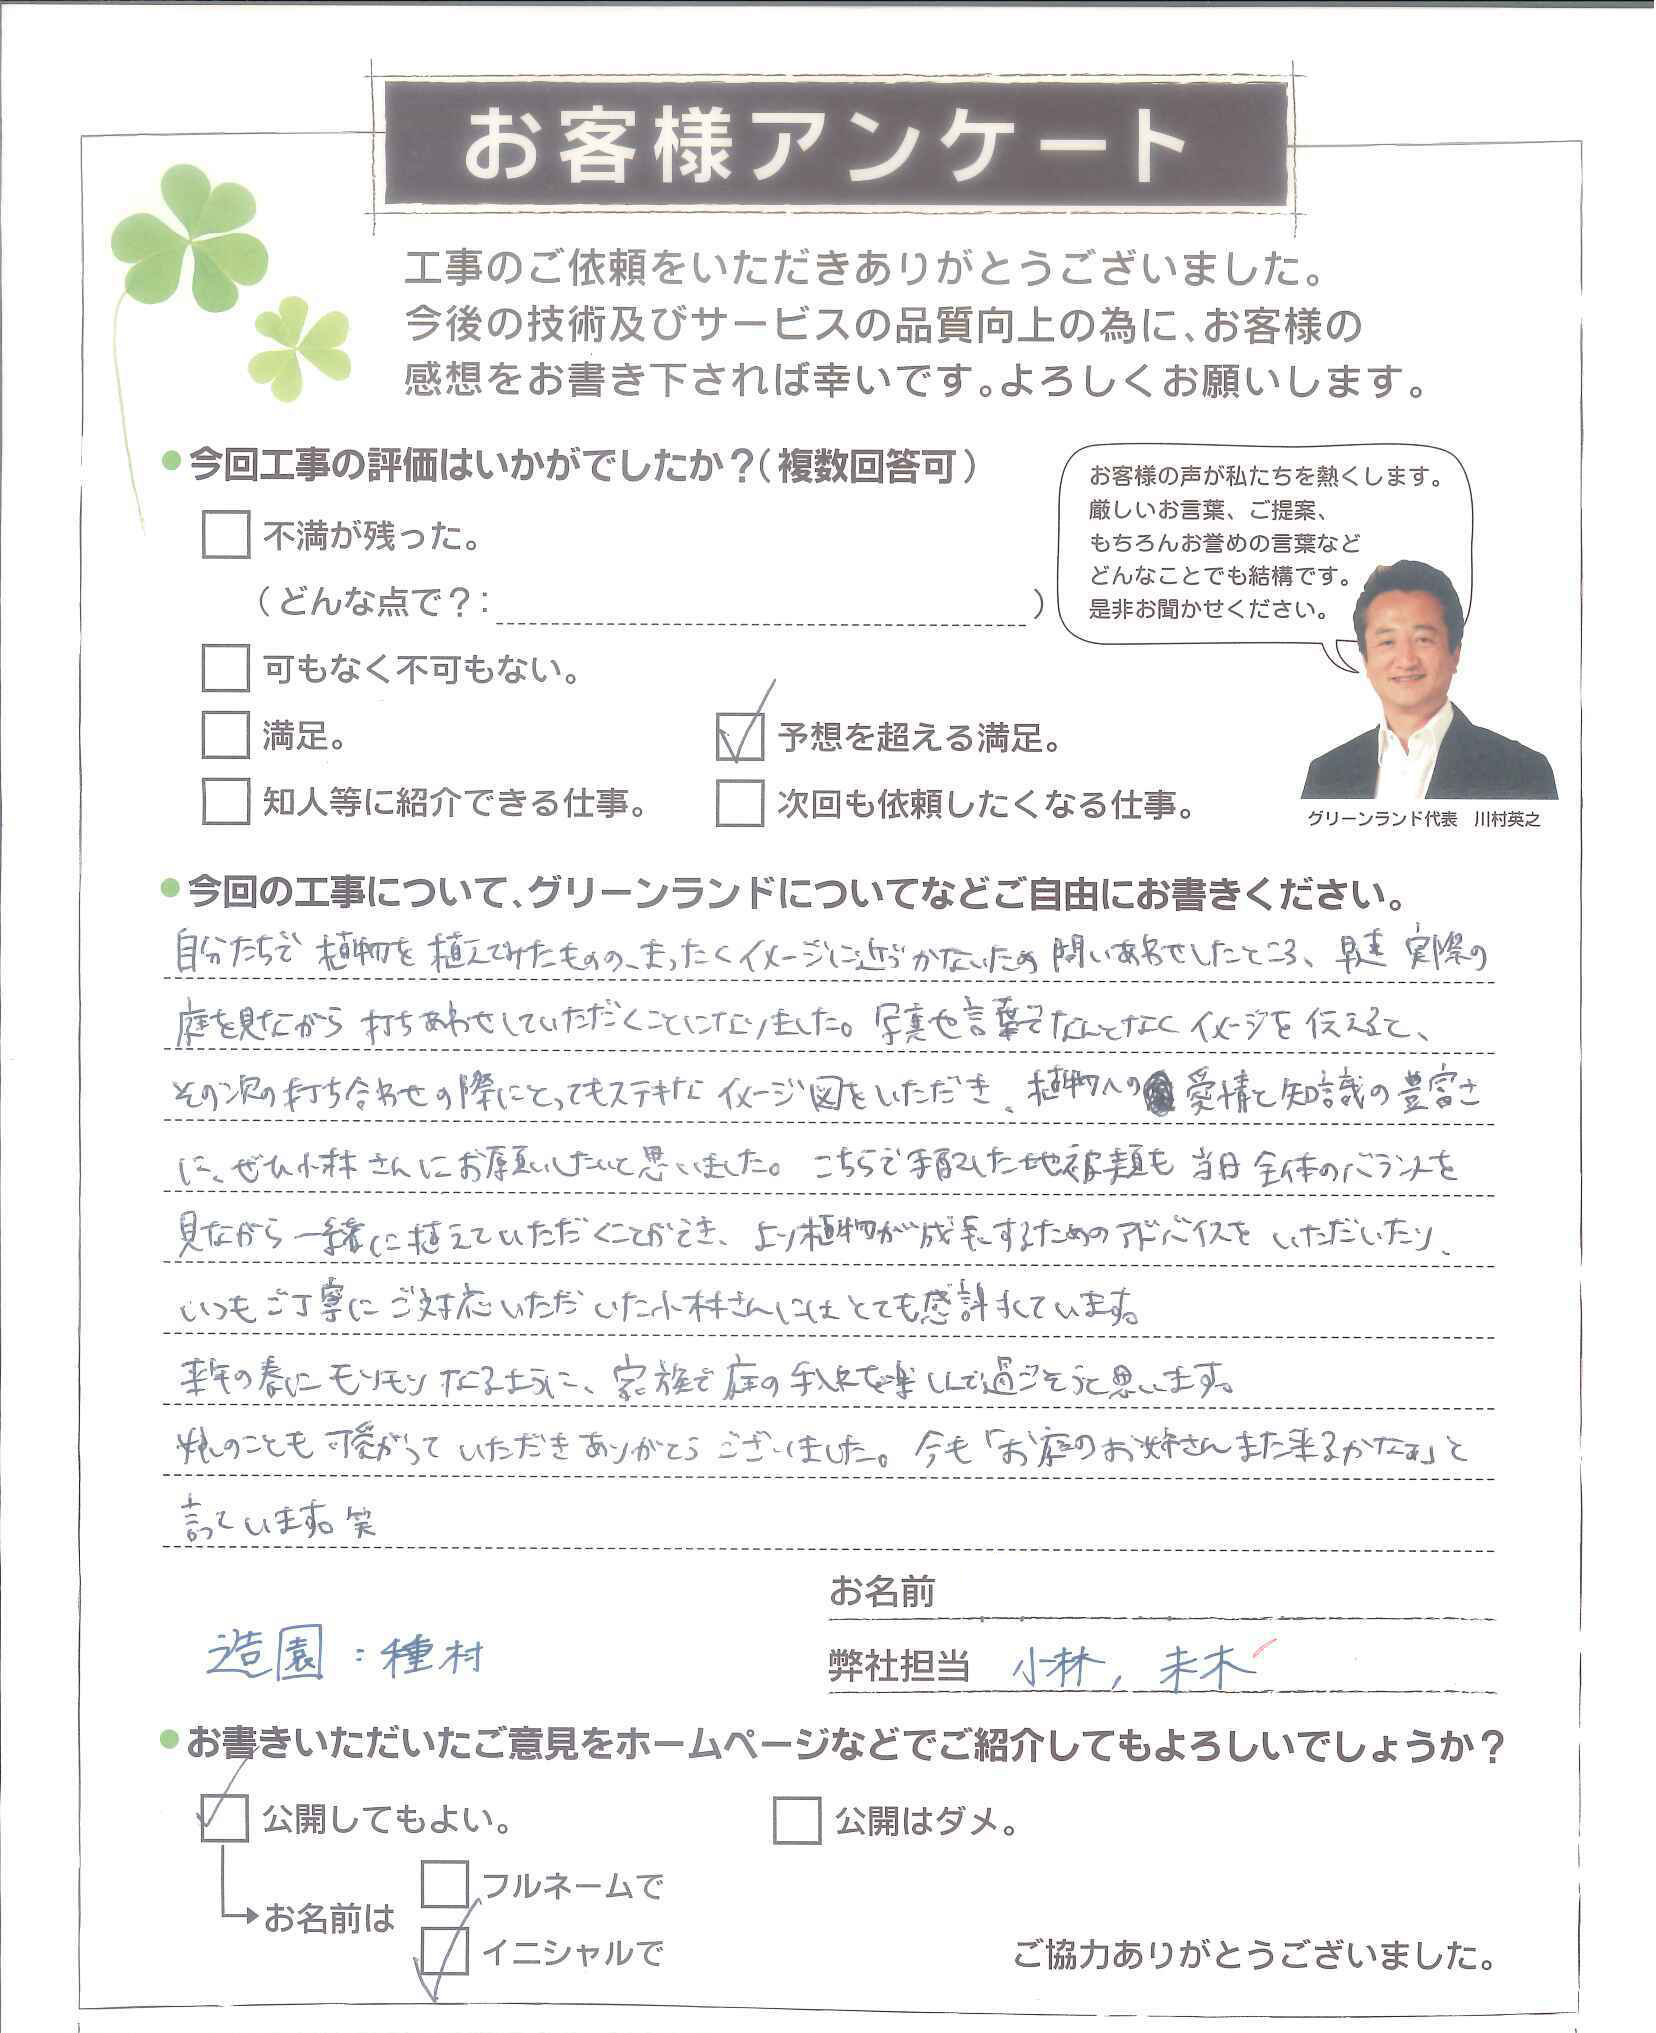 お客様アンケート
工事のご依頼をいただきありがとうございました。
今後の技術及びサービスの品質向上の為に、お客様の
感想をお書き下されば幸いです。よろしくお願いします。
●今回工事の評価はいかがでしたか？（複数回答可）
不満が残った。
（どんな点で？：　　）
可もなく不可もない。
満足。
予想を超える満足。
知人等に紹介できる仕事。
次回も依頼したくなる仕事。
お客様の声が私たちを熱くします。
厳しいお言葉、ご提案、
もちろんお誉めの言葉など
どんなことでも結構です。
是非お聞かせください。
グリーンランド代表　川村英之
●今回の工事について、グリーンランドについてなどご自由にお書きください。
自分たちで植物を植えてみたものの、まったくイメージに近づかないため問いあわせしたところ、早速実際の
庭を見ながら打ちあわせしていただくことになりました。写真や言葉でなんとなくイメージを伝えると、
その次の打ち合わせの際にとってもステキなイメージ図をいただき、植物への愛情と知識の豊富さ
に、ぜひ小林さんにお願いしたいと思いました。こちらで手配した地被類も当日全体のバランスを
見ながら一緒に植えていただくことができ、より植物が成長するためのアドバイスをいただいたり、
いつもご丁寧にご対応いただいた小林さんにはとても感謝しています。
来年の春にモリモリなるように、家族で庭の手入れを楽しんで過ごそうと思います。
娘のことも可愛がっていただきありがとうございました。今も「お庭のお姉さんまた来るかなぁ」と
言っています。笑
お名前
造園：種村
弊社担当　小林，末木
●お書きいただいたご意見をホームページなどでご紹介してもよろしいでしょうか？
公開してもよい。
公開はダメ。
お名前は
フルネームで
イニシャルで
ご協力ありがとうございました。